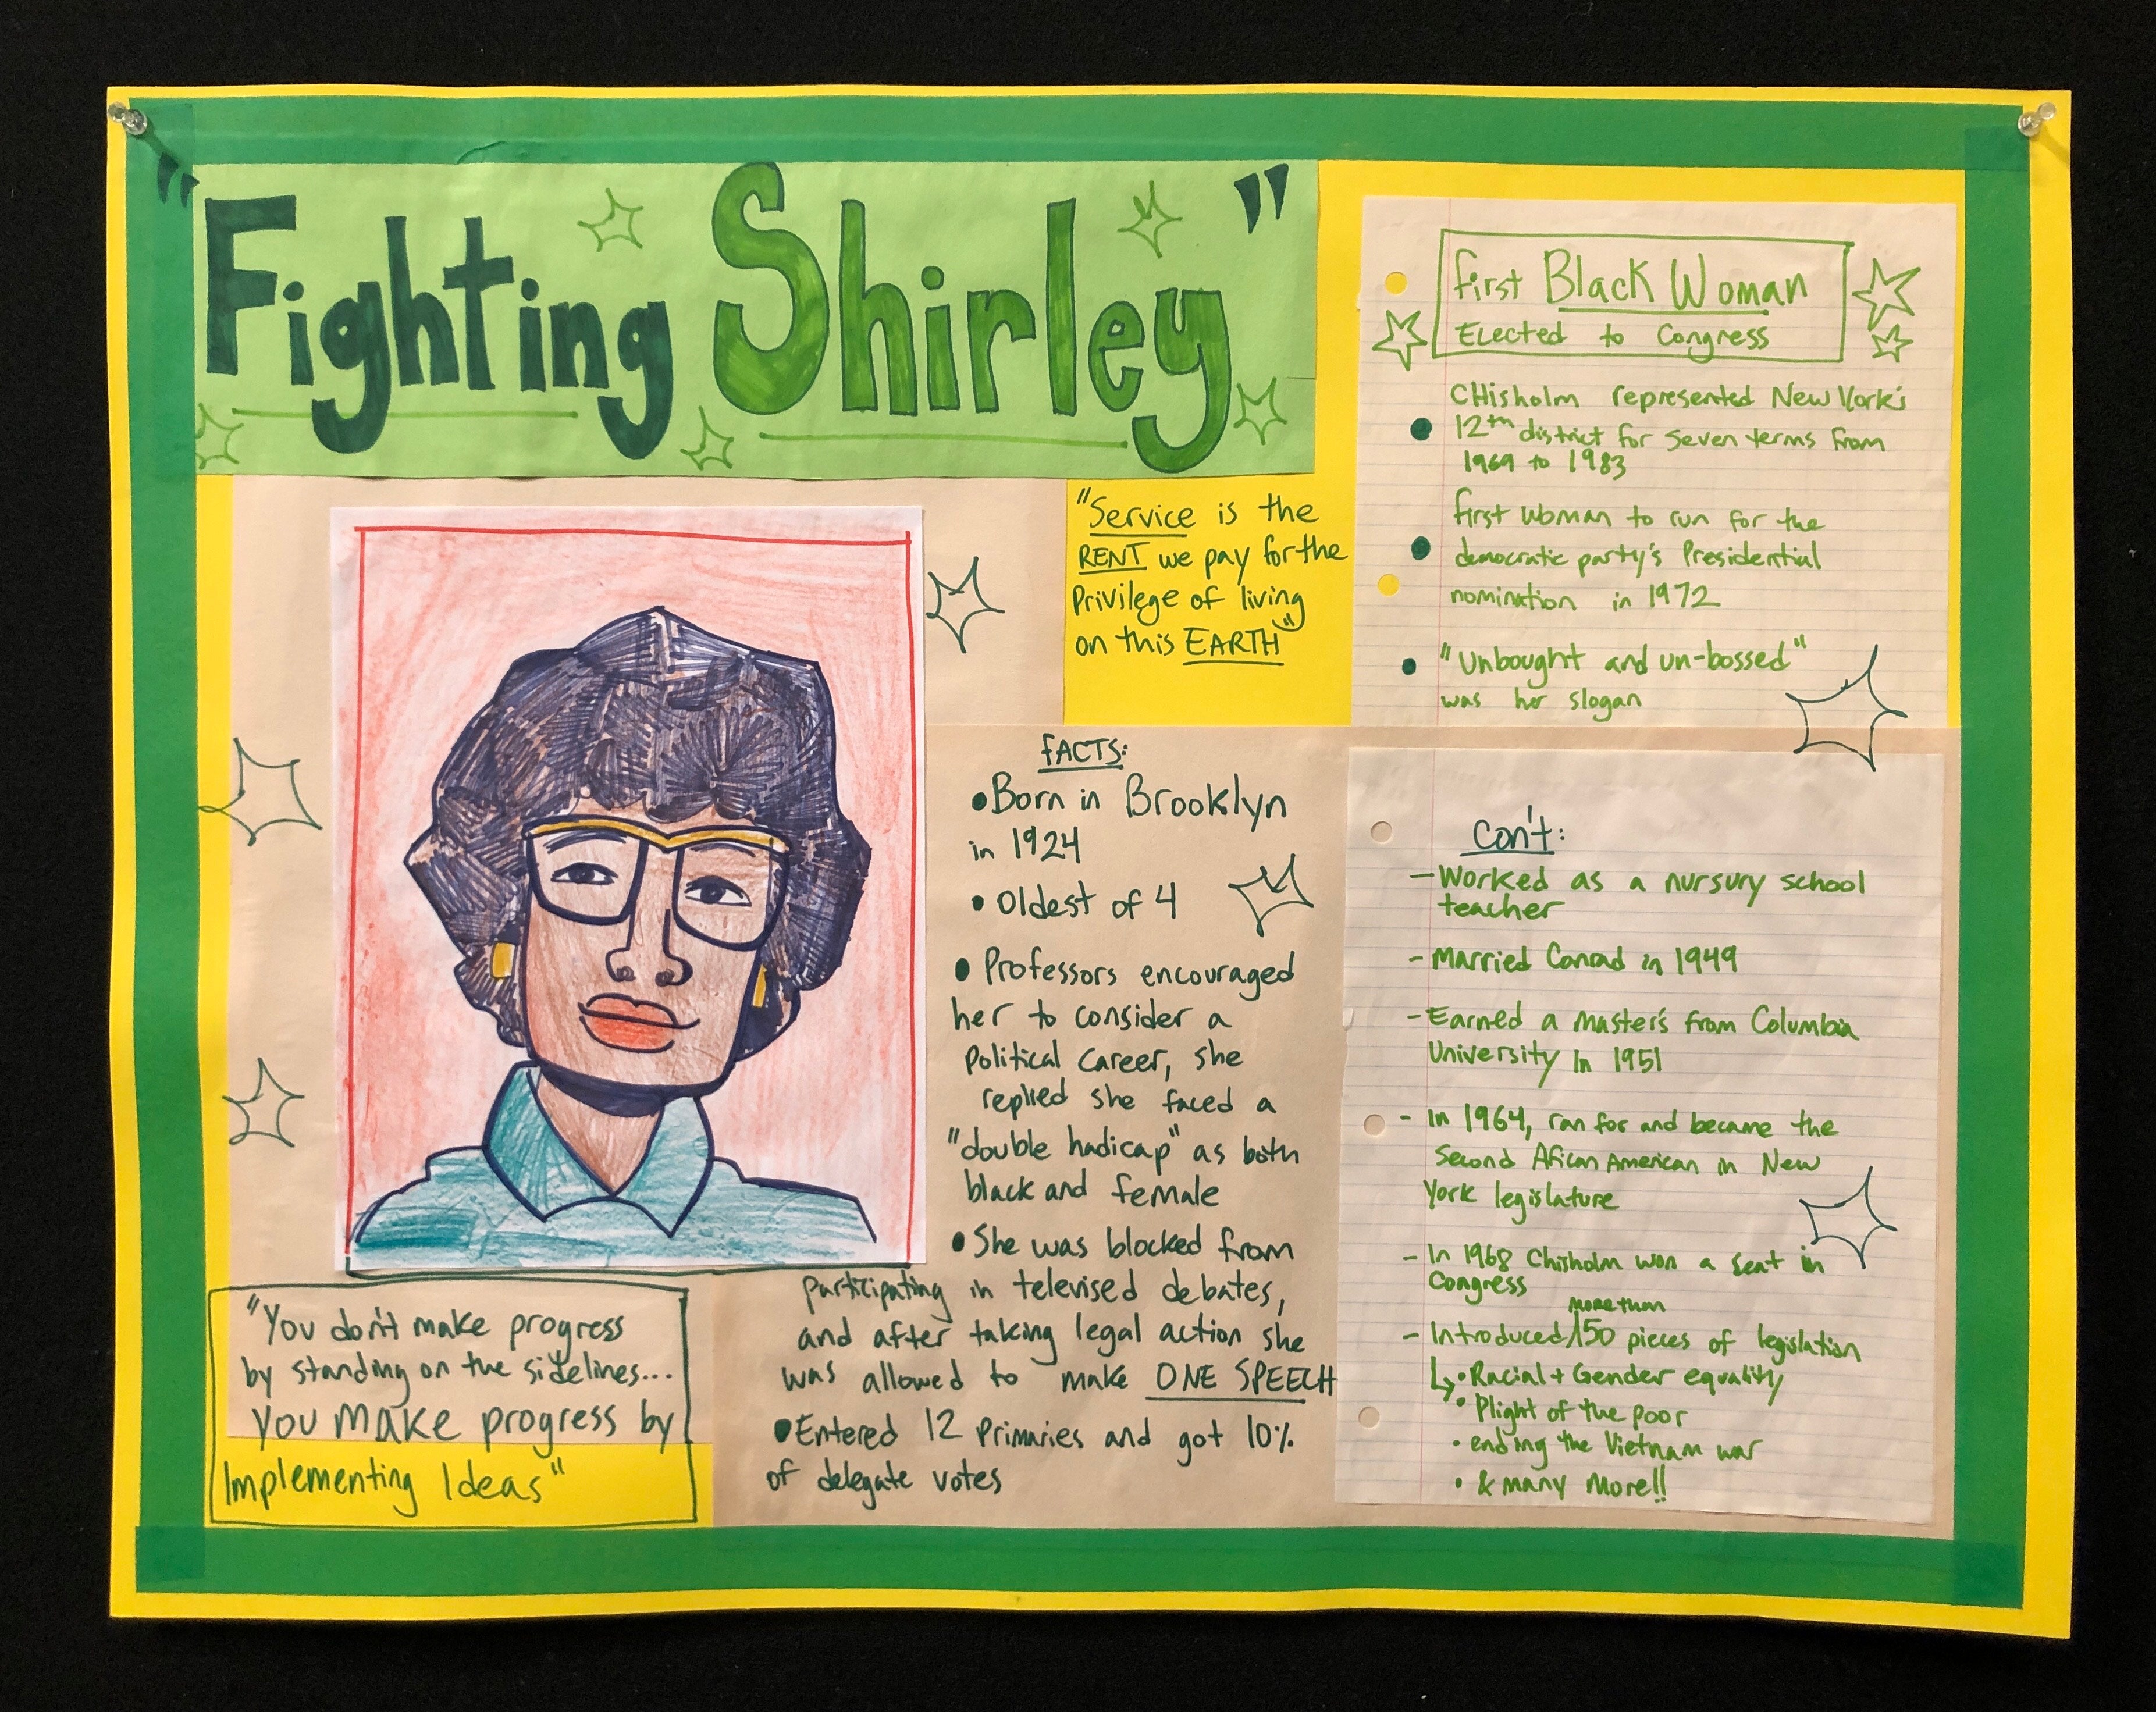 "Fighting Shirley"
"Service is the
RENT we pay for the
Privilege of living
on this EARTH"
first Black Woman
Elected to Congress
CHisholm represented New York's
12th district for seven terms from
1969 to 1983
first woman to run for the
democratic party's Presidential
nomination in 1972
"Unbought and un-bossed"
was her slogan
FACTS:
•Born in Brooklyn
in 1924
• Oldest of 4
• Professors encouraged
her to consider a
Political career, she
replied she faced a
"double hadicap" as both
black and female
• She was blocked from
participating in televised debates,
and after taking legal action she
was allowed to make ONE SPEECH
•Entered 12 Primaries and got 10%
of delegate votes
"You don't make progress
by standing on the sidelines...
you make progress by
Implementing Ideas"
con't:
- Worked as a nursury school
teacher
- Married Conrad in 1949
- Earned a master's from Columbia
University in 1951
- In 1964, ran for and became the
second African American in New
York legislature
- In 1968 Chisholm won a seat in
Congress
more than
- Introduced 50 pieces of legislation
↳• Racial + Gender equality
• Plight of the poor
• ending the Vietnam war
• & many More!!